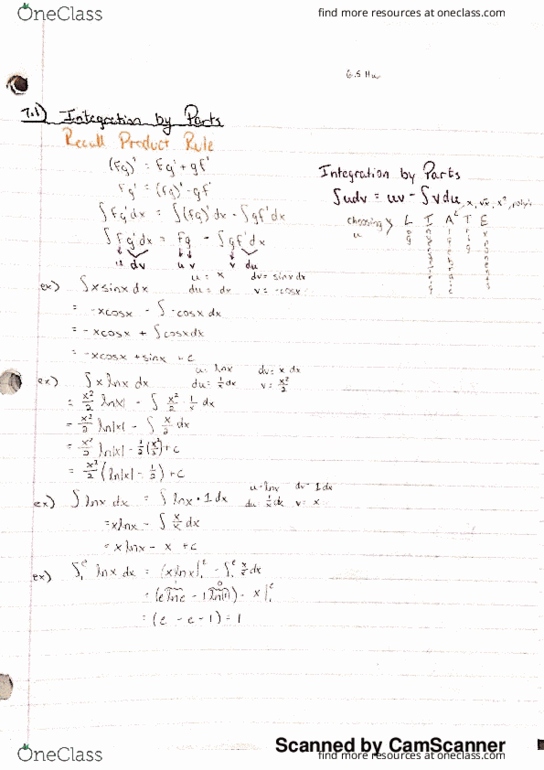 OneClass
find more resources at oneclass.com
6.5 Hw
7.1) Integration by Parts
Recall Product Rule
(fg)' = fg' + gf'
fg' = (fg)' - gf'
∫fg'dx = ∫(fg)'dx - ∫gf'dx
∫fg'dx = fg - ∫gf'dx
u dv u v v du
Integration by Parts
∫udv = uv - ∫vdu
choosing u > L I A T E
ex) ∫xsinx dx u = x dv = sinxdx
du = dx v = -cosx
= -xcosx - ∫-cosx dx
= -xcosx + ∫cosxdx
= -xcosx + sinx + c
ex) ∫x lnx dx u = lnx dv = x dx
du = 1/x dx v = x²/2
= x²/2 ln|x| - ∫ x²/2 · 1/x dx
= x²/2 ln|x| - ∫ x/2 dx
= x²/2 ln|x| - 1/2(x²/2) + c
= x²/2 (ln|x| - 1/2) + c
ex) ∫ lnx dx = ∫ lnx • 1dx u = lnx dv = 1dx
du = 1/x dx v = x
= xlnx - ∫ x/x dx
= xlnx - x + c
ex) ∫₁ᵉ lnx dx = (xlnx|₁ᵉ - ∫₁ᵉ x/x dx
= (e lne - 1 ln(1)) - x|₁ᵉ
= (e - e - 1) = 1
Scanned by CamScanner
OneClass
find more resources at oneclass.com